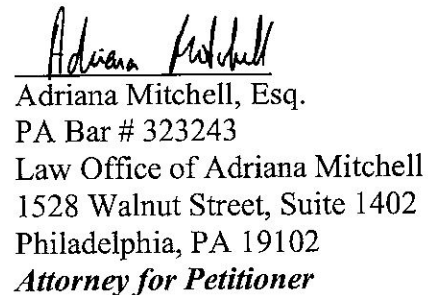 Adriana Mitchell
Adriana Mitchell, Esq.
PA Bar # 323243
Law Office of Adriana Mitchell
1528 Walnut Street, Suite 1402
Philadelphia, PA 19102
Attorney for Petitioner